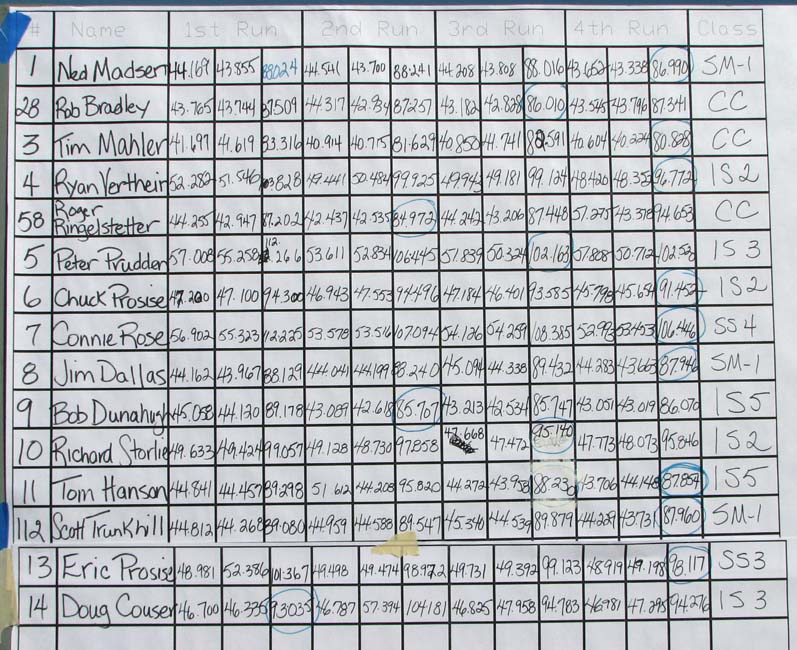 # Name 1st Run 2nd Run 3rd Run 4th Run Class
1 Ned Madsen 44.169 43.855 88.024 44.541 43.700 88.241 44.208 43.808 88.016 43.652 43.338 86.990 SM-1
28 Rob Bradley 43.765 43.744 87.509 44.317 42.934 87.257 43.182 42.828 86.010 43.545 43.796 87.341 CC
3 Tim Mahler 41.697 41.619 83.316 40.914 40.715 81.629 40.850 41.741 82.591 40.604 40.224 80.828 CC
4 Ryan Vertheir 52.282 51.546 828 49.441 50.484 99.925 49.943 49.181 99.124 48.420 48.352 96.772 IS2
58 Roger
Ringelstetter 44.255 42.947 87.202 42.437 42.535 84.972 44.242 43.206 87.448 57.275 43.378 94.653 CC
5 Peter Prudden 57.008 55.258 112.266 53.611 52.834 106.445 51.839 50.324 102.163 57.808 50.712 102.52 IS3
6 Chuck Prosise 47.200 47.100 94.300 46.943 47.553 94.496 47.184 46.401 93.585 45.798 45.654 91.452 IS2
7 Connie Rose 56.902 55.323 112.225 53.578 53.516 107.094 54.126 54.259 108.385 52.993 53.453 106.446 SS4
8 Jim Dallas 44.162 43.967 88.129 44.041 44.199 88.240 45.094 44.338 89.432 44.283 43.663 87.946 SM-1
9 Bob Dunahugh 45.058 44.120 89.178 43.089 42.618 85.767 43.213 42.534 85.747 43.051 43.019 86.070 IS5
10 Richard Storlie 49.633 49.424 99.057 49.128 48.730 97.858 47.668 47.472 95.140 47.773 48.073 95.846 IS2
11 Tom Hanson 44.841 44.457 89.298 51.612 44.208 95.820 44.272 43.958 88.230 43.706 44.148 87.854 IS5
112 Scott Trunkhill 44.812 44.268 89.080 44.959 44.588 89.547 45.340 44.539 89.879 44.229 43.731 87.960 SM-1
13 Eric Prosise 48.981 52.386 101.367 49.498 49.474 98.972 49.731 49.392 99.123 48.919 49.198 98.117 SS3
14 Doug Couser 46.700 46.335 93.035 46.787 57.394 104.181 46.825 47.958 94.783 46.981 47.295 94.276 IS3